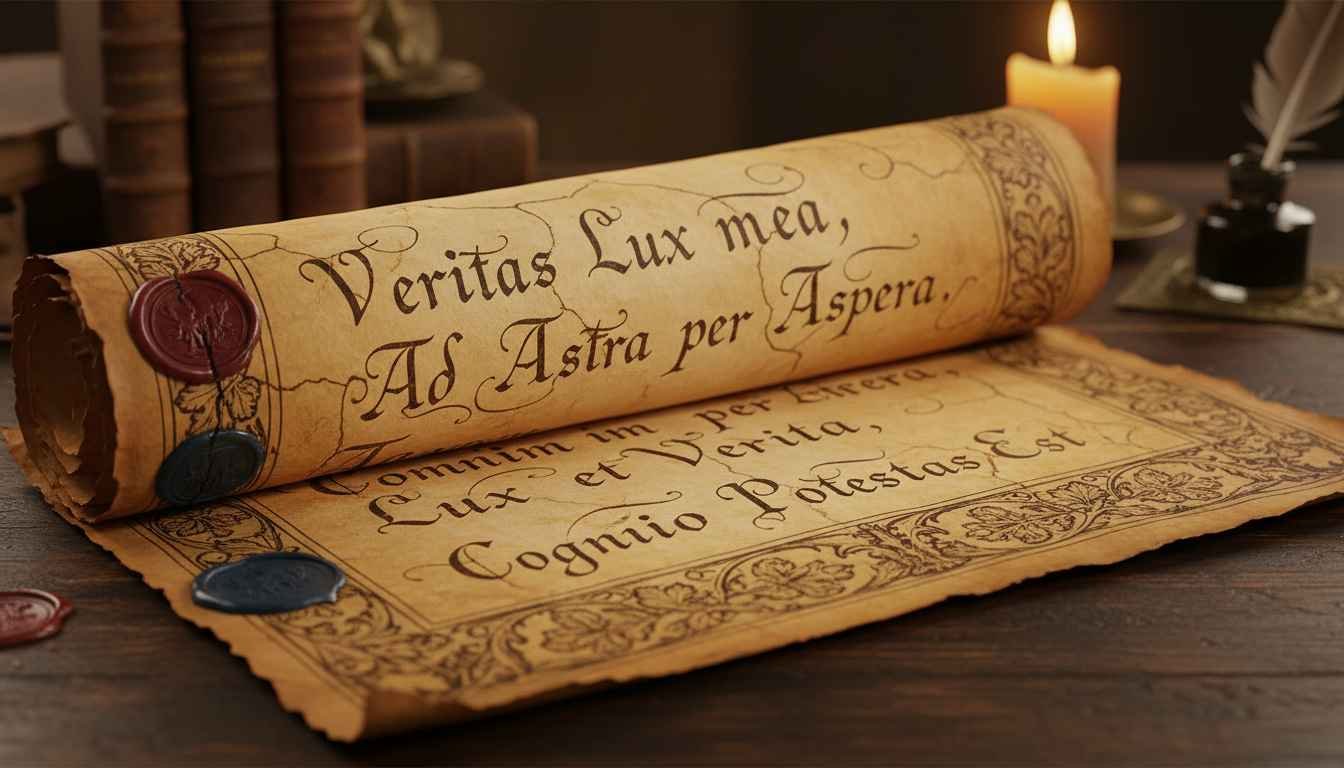 Veritas Lux mea,
Ad Astra per Aspera.
Comnim im per
Lux et Verita,
Cogniio Potestas Est